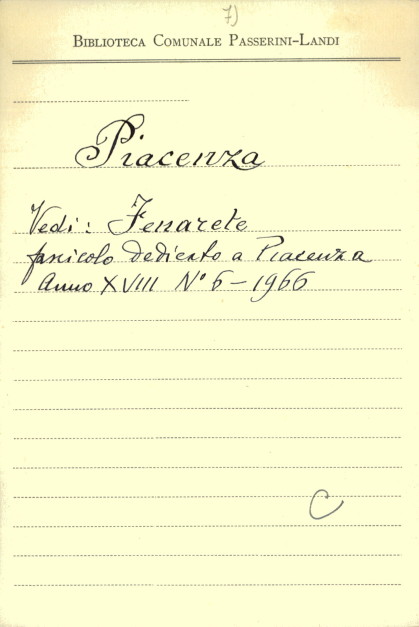 7)
BIBLIOTECA COMUNALE PASSERINI-LANDI
Piacenza
Vedi: Fenarete
fascicolo dedicato a Piacenza
Anno XVIII N° 6 - 1966
C